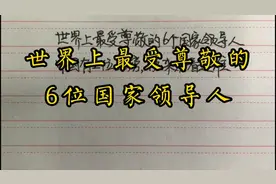 世界上最受尊敬的6个国家领导人
世界上最受尊敬的
6位国家领导人